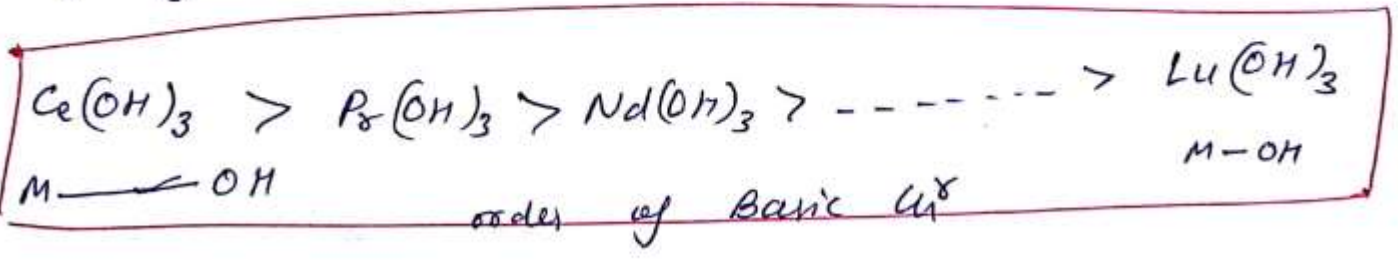 Ce(OH)3 > Pr(OH)3 > Nd(OH)3 > - - - - - - - - > Lu(OH)3
M——OH M-OH
order of Basic Chr